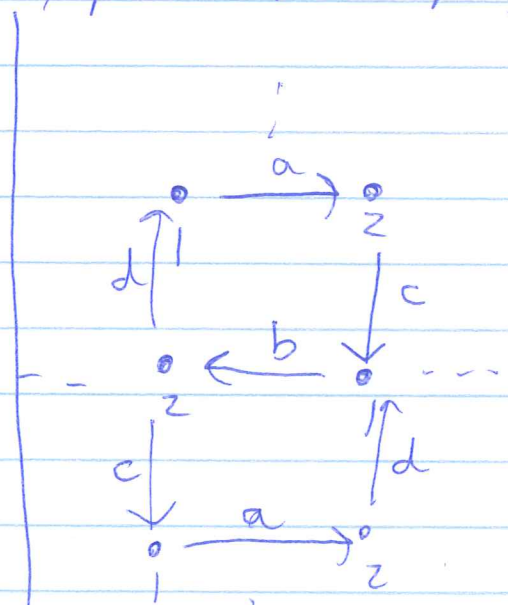 a
1 2
d c
b
2 1
c d
a
1 2